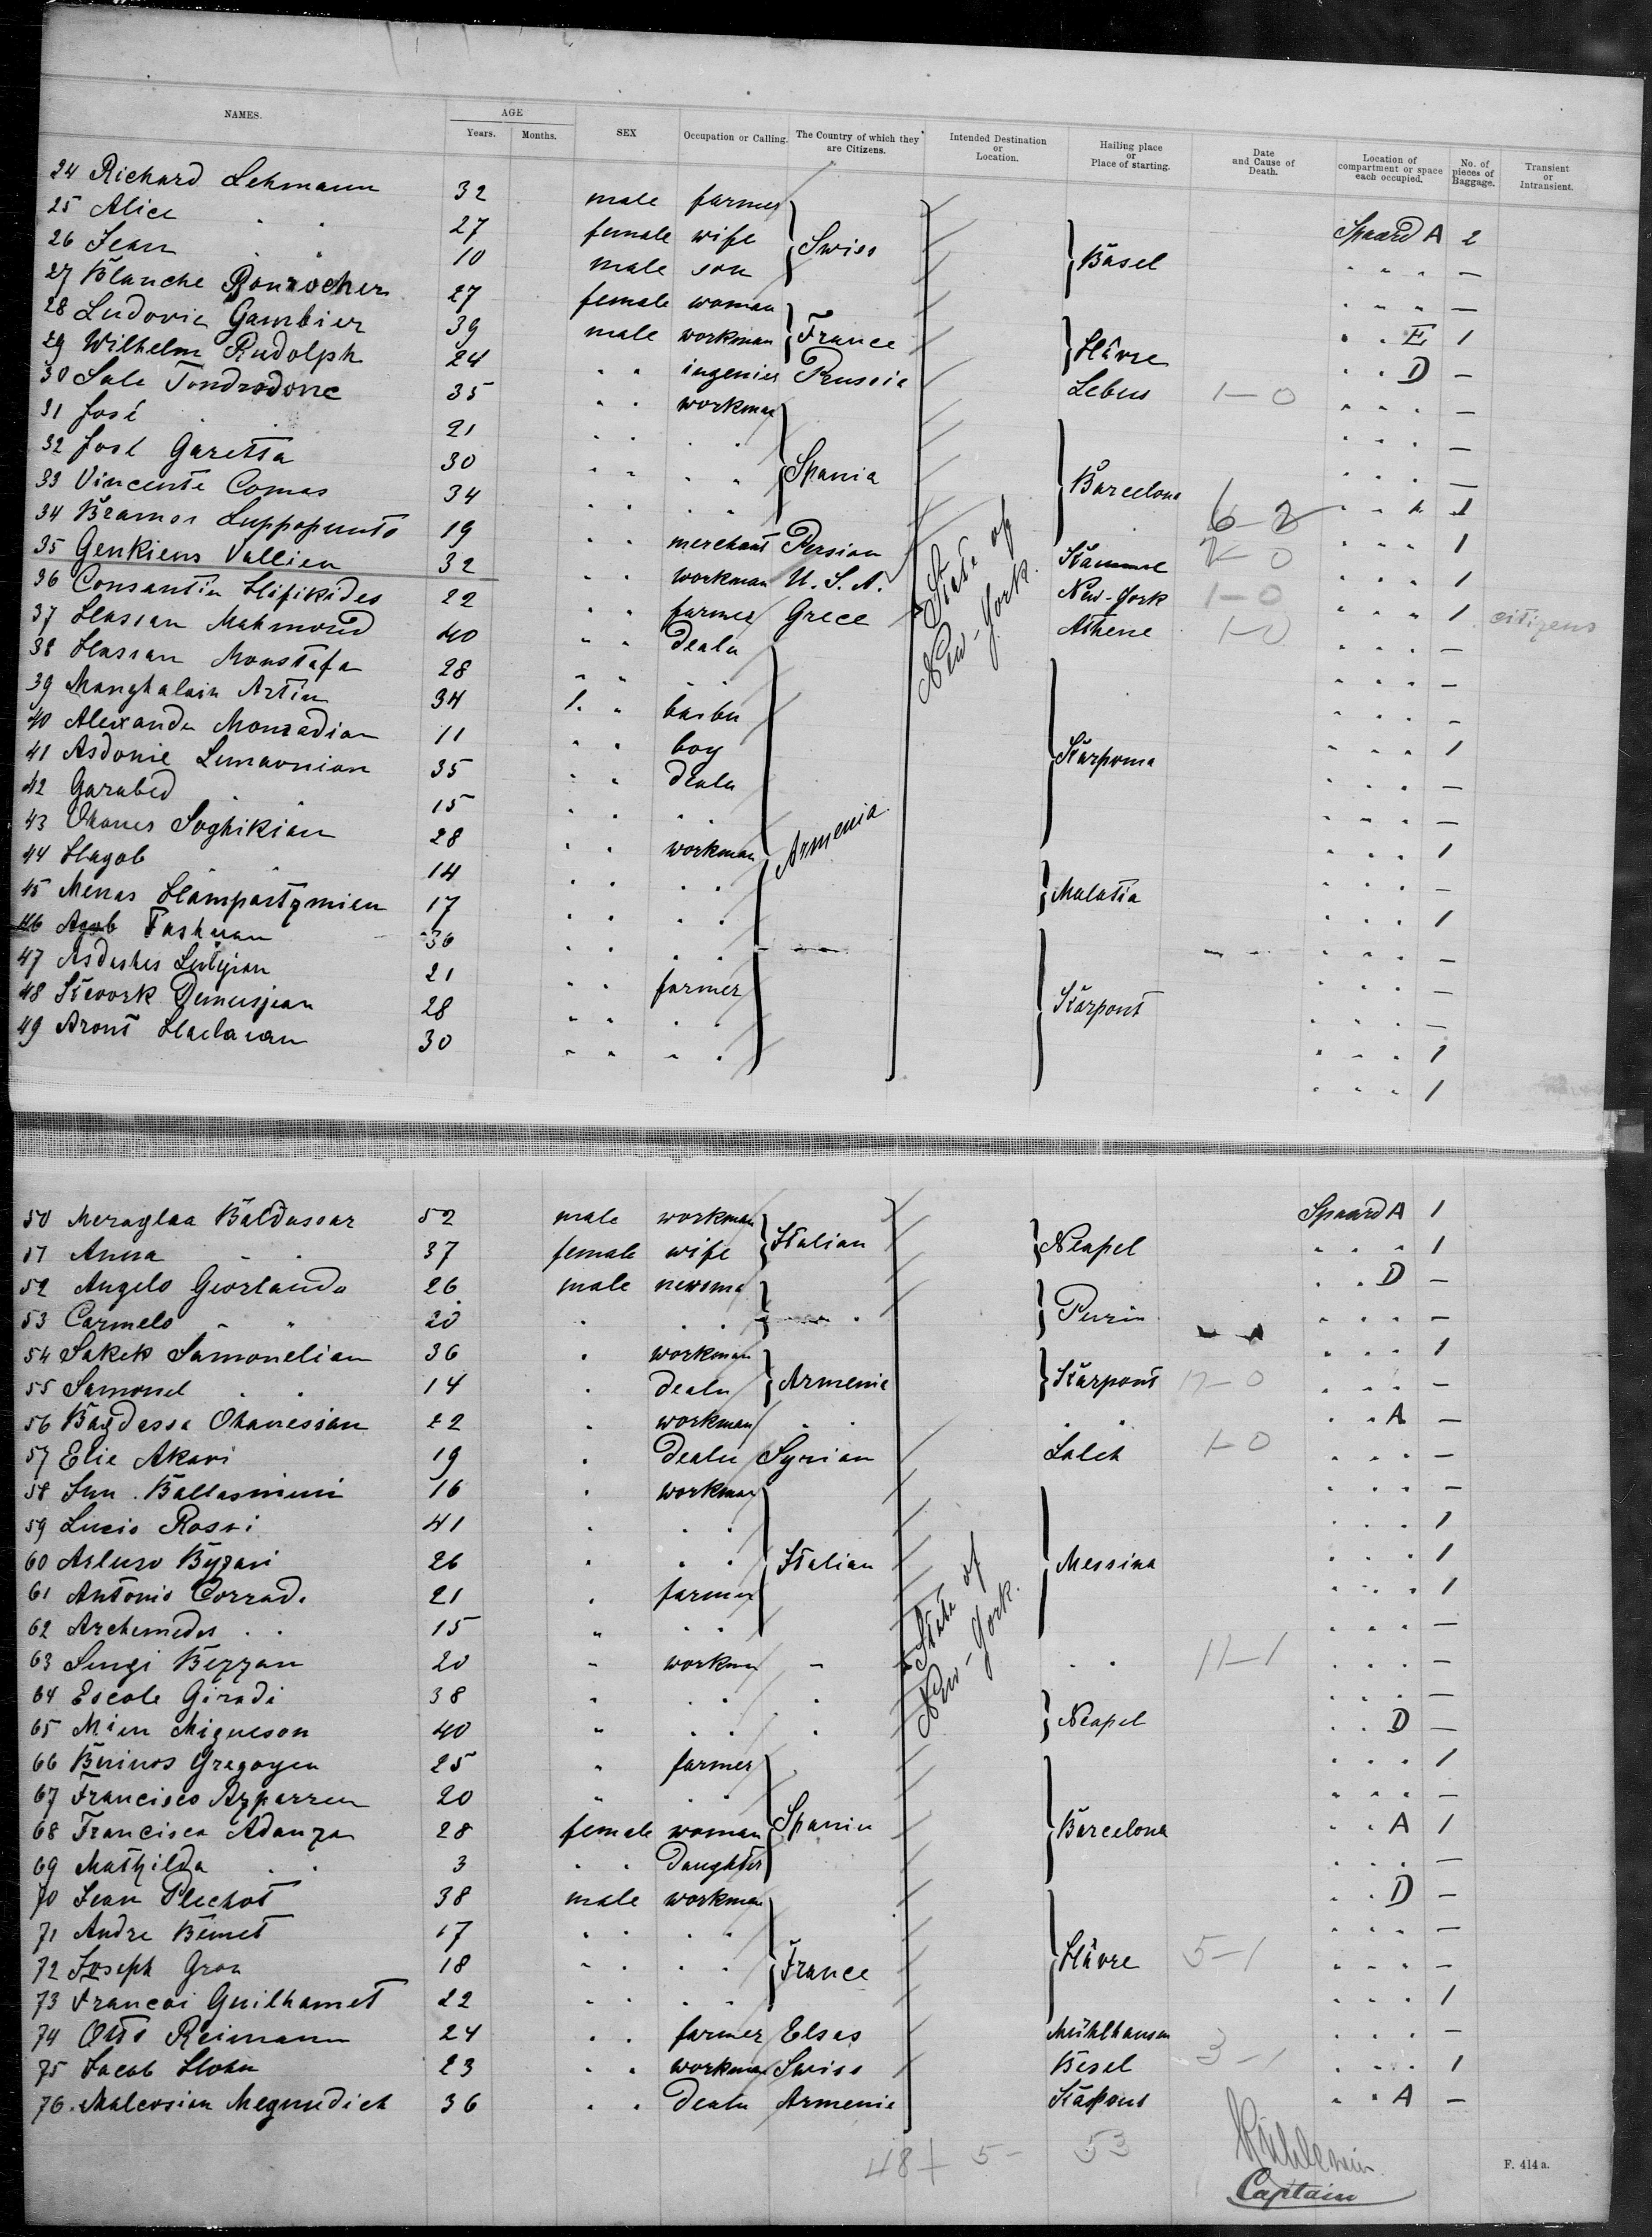 NAMES. AGE Years. Months. SEX Occupation or Calling. The Country of which they are Citizens. Intended Destination or Location. Hailing place or Place of starting. Date and Cause of Death. Location of compartment or space each occupied. No. of pieces of Baggage. Transient or Intransient.
24 Richard Lehmann 32 male farmer Swiss State of New-York. Basel A 2
25 Alice " " 27 female wife " " " —
26 Jean " " 10 male son " " " —
27 Blanche 27 female woman France Hâvre " " E 1
28 Ludovic Gambier 39 male workman " " D —
29 Wilhelm Rudolph 24 " " ingenier Prussia Lebus 1—0 " " " —
30 Sale Tondrodone 35 " " workman Spania Barcelona " " " —
31 José " " 21 " " " " " " " —
32 José Garetta 30 " " " " " " 1
33 Vincente Comas 34 " " " " 6—2 " " " 1
34 Bramos Luppopunto 19 " " merchant Persian 1—0 " " " 1
35 Genkiens Vallien 32 " " workman U. S. A. New-York 1—0 " " " 1 citizens
36 Consantin Hifikides 22 " " farmer Grece Athene 1—0 " " " —
37 Hassan Mahmoud 40 " " dealer Armenia Karpoma " " " —
38 Hassan Moustafa 28 " " " " " " " —
39 Manghalain Artin 34 " " barber " " " 1
40 Alexander Mouradian 11 " " boy " " " —
41 Asdonie Lumaonian 35 " " dealer " " " —
42 Garabed " " 15 " " " " " " " 1
43 Ohanes Soghikian 28 " " workman Malatia " " " —
44 Hagob " " 14 " " " " " " " 1
45 Menas Hampartzmien 17 " " " " Karpont " " " —
46 Agob Tashuan 36 " " " " " " " —
47 Asdashes 21 " " farmer " " " —
48 Kevork Demensjean 28 " " " " " " " 1
49 Aront 30 " " " " " " " 1
50 Meraglaa Baldassar 52 male workman Italian State of New-York. Neapel A 1
51 Anna " " 37 female wife " " " 1
52 Angelo Georlando 26 male Turin " " D —
53 Carmelo " " 20 " " " " " " —
54 Sakek Samonelian 36 " workman Armenie Karpont " " " 1
55 Samouel " " 14 " dealer 17—0 " " " —
56 Bagdassa Ohanessian 22 " workman " " " " " " A —
57 Elie Akari 19 " dealer Syrian Laleh 1—0 " " " —
58 Ballasmini 16 " workman Italian Messina " " " —
59 Lucio Rossi 41 " " " " " " 1
60 Arturo Byzari 26 " " " " " " 1
61 Antonio Corrado 21 " farmer " " " 1
62 Archemedes " " 15 " " " " " " —
63 Luigi Bezzan 20 " workman " " " 11—1 " " " —
64 Escole Giradi 38 " " " " Neapel " " " —
65 Mien Migueson 40 " " " " " " D —
66 Beninos Gregoyen 25 " farmer Spania Barcelona " " " 1
67 Francisco Azparren 20 " " " " " " —
68 Francisca Adanza 28 female woman " " A 1
69 Mathilda " " 3 " " daughter " " " —
70 Jean Plechot 38 male workman France Hâvre " " D —
71 Andre Bemet 17 " " " " " " " —
72 Joseph Gron 18 " " " " 5—1 " " " —
73 Francoi Guilhamet 22 " " " " " " " 1
74 Otto Reimann 24 " " farmer Elsas Mühlhausen " " " —
75 Jacob Hohn 23 " " workman Swiss Besel 3—1 " " " 1
76. Malcosian Megurdich 36 " " dealer Armenie Karpont " " A —
48 + 5 — 53
Captain
F. 414 a.